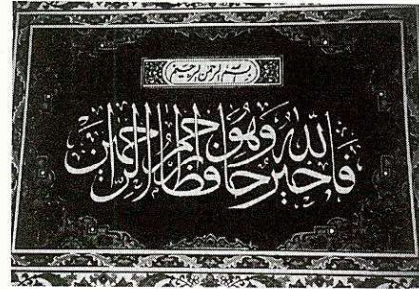 بسم الله الرحمن الرحیم
فالله خیر حافظا و هو ارحم الراحمین